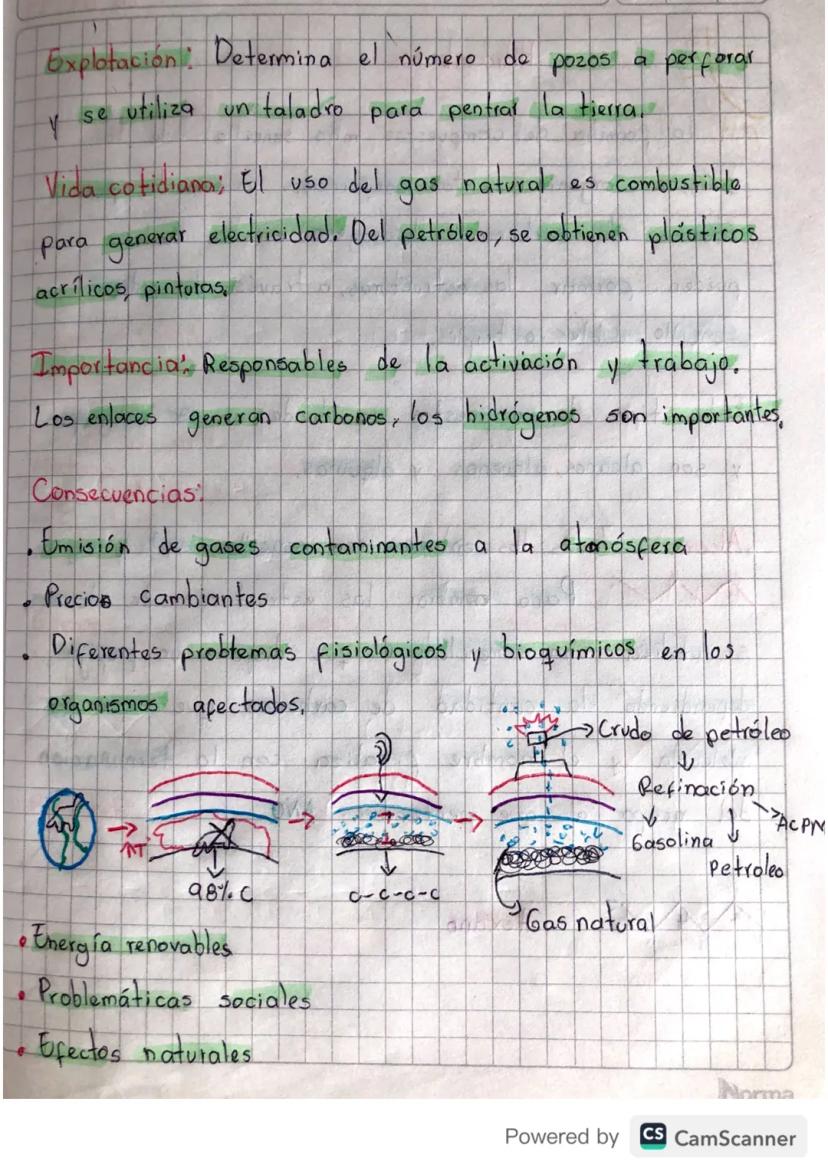 Explotación: Determina el número de pozos a perforar
y se utiliza un taladro para pentrar la tierra.
Vida cotidiana; El uso del gas natural es combustible
para generar electricidad. Del petróleo, se obtienen plásticos
acrílicos, pinturas.
Importancia: Responsables de la activación y trabajo.
Los enlaces generan carbonos, los hidrógenos son importantes.
Consecuencias:
. Emisión de gases contaminantes a la atmósfera
. Precios cambiantes
. Diferentes problemas fisiológicos y bioquímicos en los
organismos afectados.
Crudo de petróleo
Refinación
Gasolina
ACPM
Petroleo
↑T
98% C
c-c-c-c
Gas natural
• Energía renovables
• Problemáticas sociales
• Efectos naturales
Norma
Powered by CS CamScanner